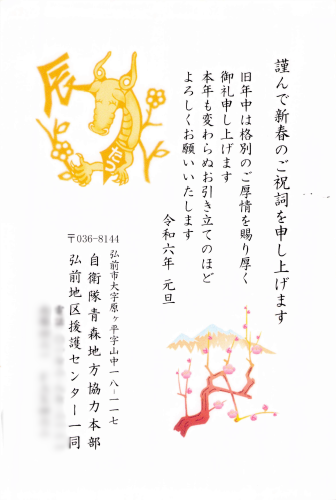 謹んで新春のご祝詞を申し上げます
旧年中は格別のご厚情を賜り厚く
御礼申し上げます
本年も変わらぬお引き立てのほど
よろしくお願いいたします
令和六年 元旦
辰
たつ
〒036-8144
弘前市大字原ヶ平字山中一八-一一七
自衛隊青森地方協力本部
弘前地区援護センター一同